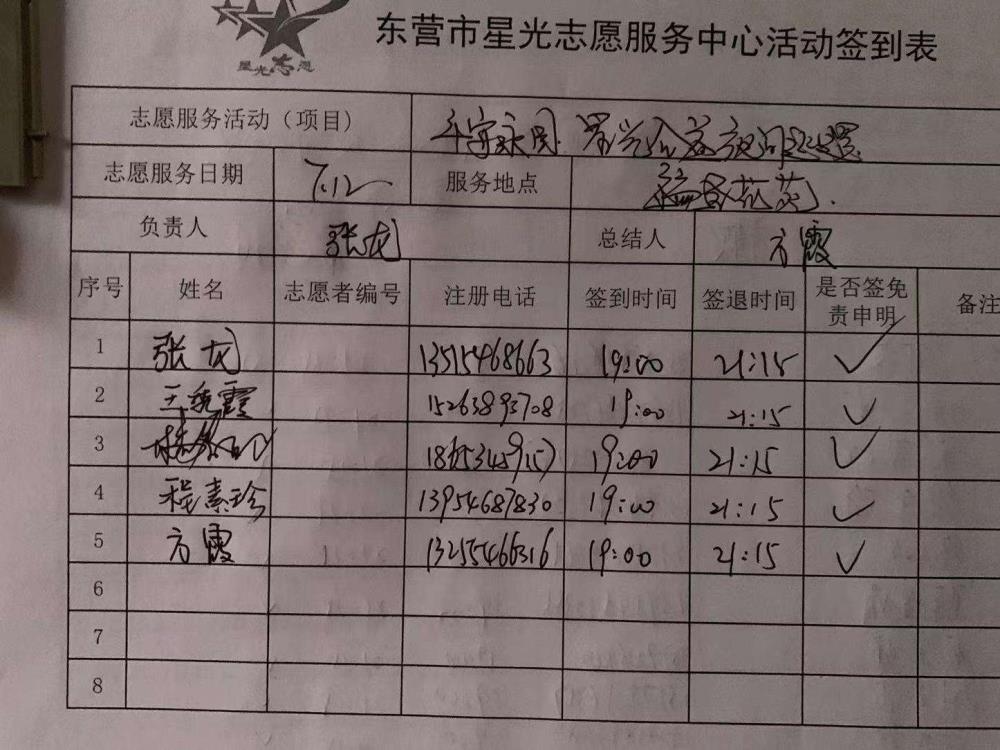 星光志愿
东营市星光志愿服务中心活动签到表
志愿服务活动（项目）
志愿服务日期 7.12 服务地点
负责人 张龙 总结人 方霞
序号 姓名 志愿者编号 注册电话 签到时间 签退时间 是否签免责申明 备注
1 张龙 13515468663 19:00 21:15 ✓
2 霞 15263893708 19:00 21:15 ✓
3 19:00 21:15 ✓
4 程素珍 13954687830 19:00 21:15 ✓
5 方霞 13255466316 19:00 21:15 ✓
6
7
8